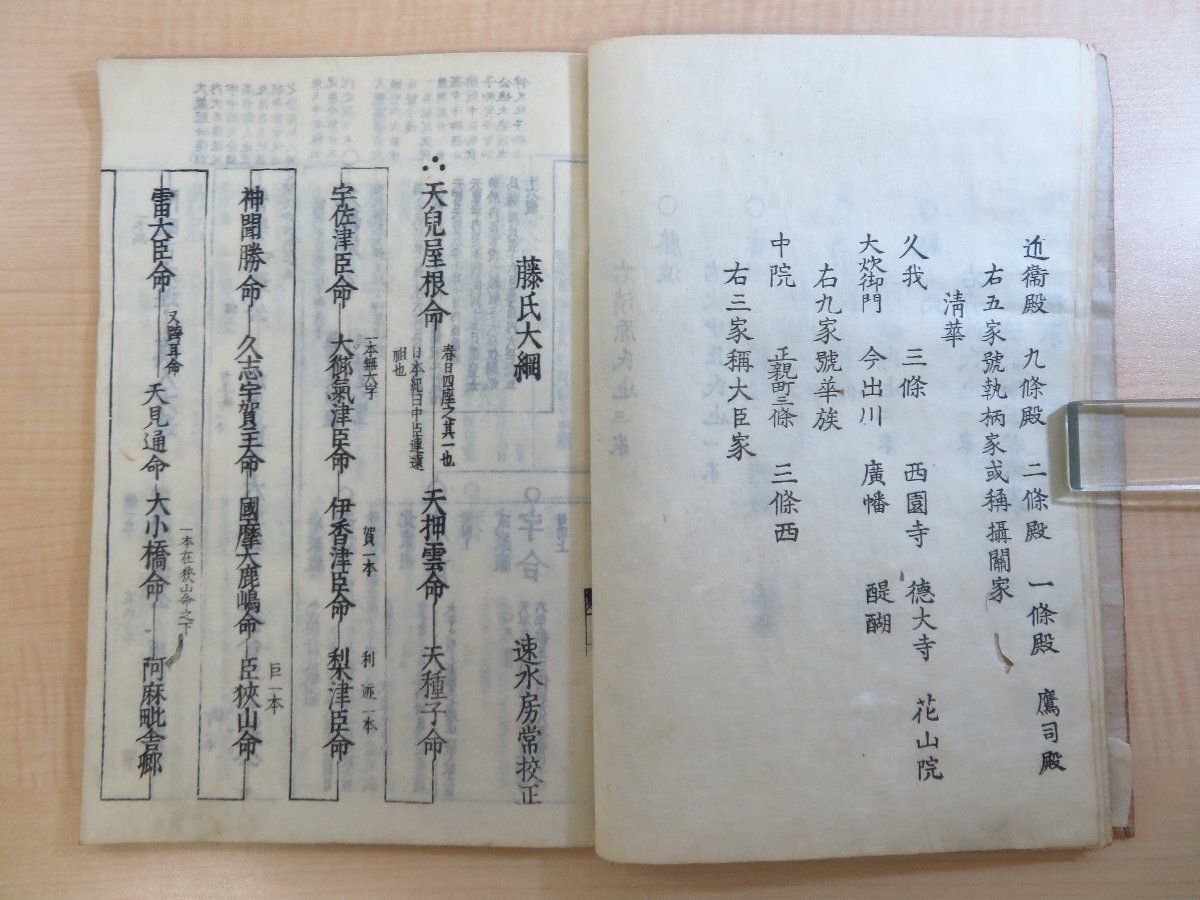 近衞殿 九條殿 二條殿 一條殿 鷹司殿
右五家號執柄家或稱攝關家
淸華
久我 三條 西園寺 德大寺 花山院
大炊御門 今出川 廣幡 醍醐
右九家號華族
中院 正親町三條 三條西
右三家稱大臣家
藤氏大綱 速水房常挍正
天兒屋根命 天押雲命 天種子命
春日四座之其一也
日本紀曰中臣連遠
祖也
宇佐津臣命 大御氣津臣命 伊香津臣命 梨津臣命
一本無大字
賀一本
利 迹一本
神聞勝命 久志宇賀主命 國摩大鹿嶋命 臣狹山命
巨一本
雷大臣命 天見通命 大小橋命 阿麻毗舎卿
又跨耳命
一本在狹山命之下